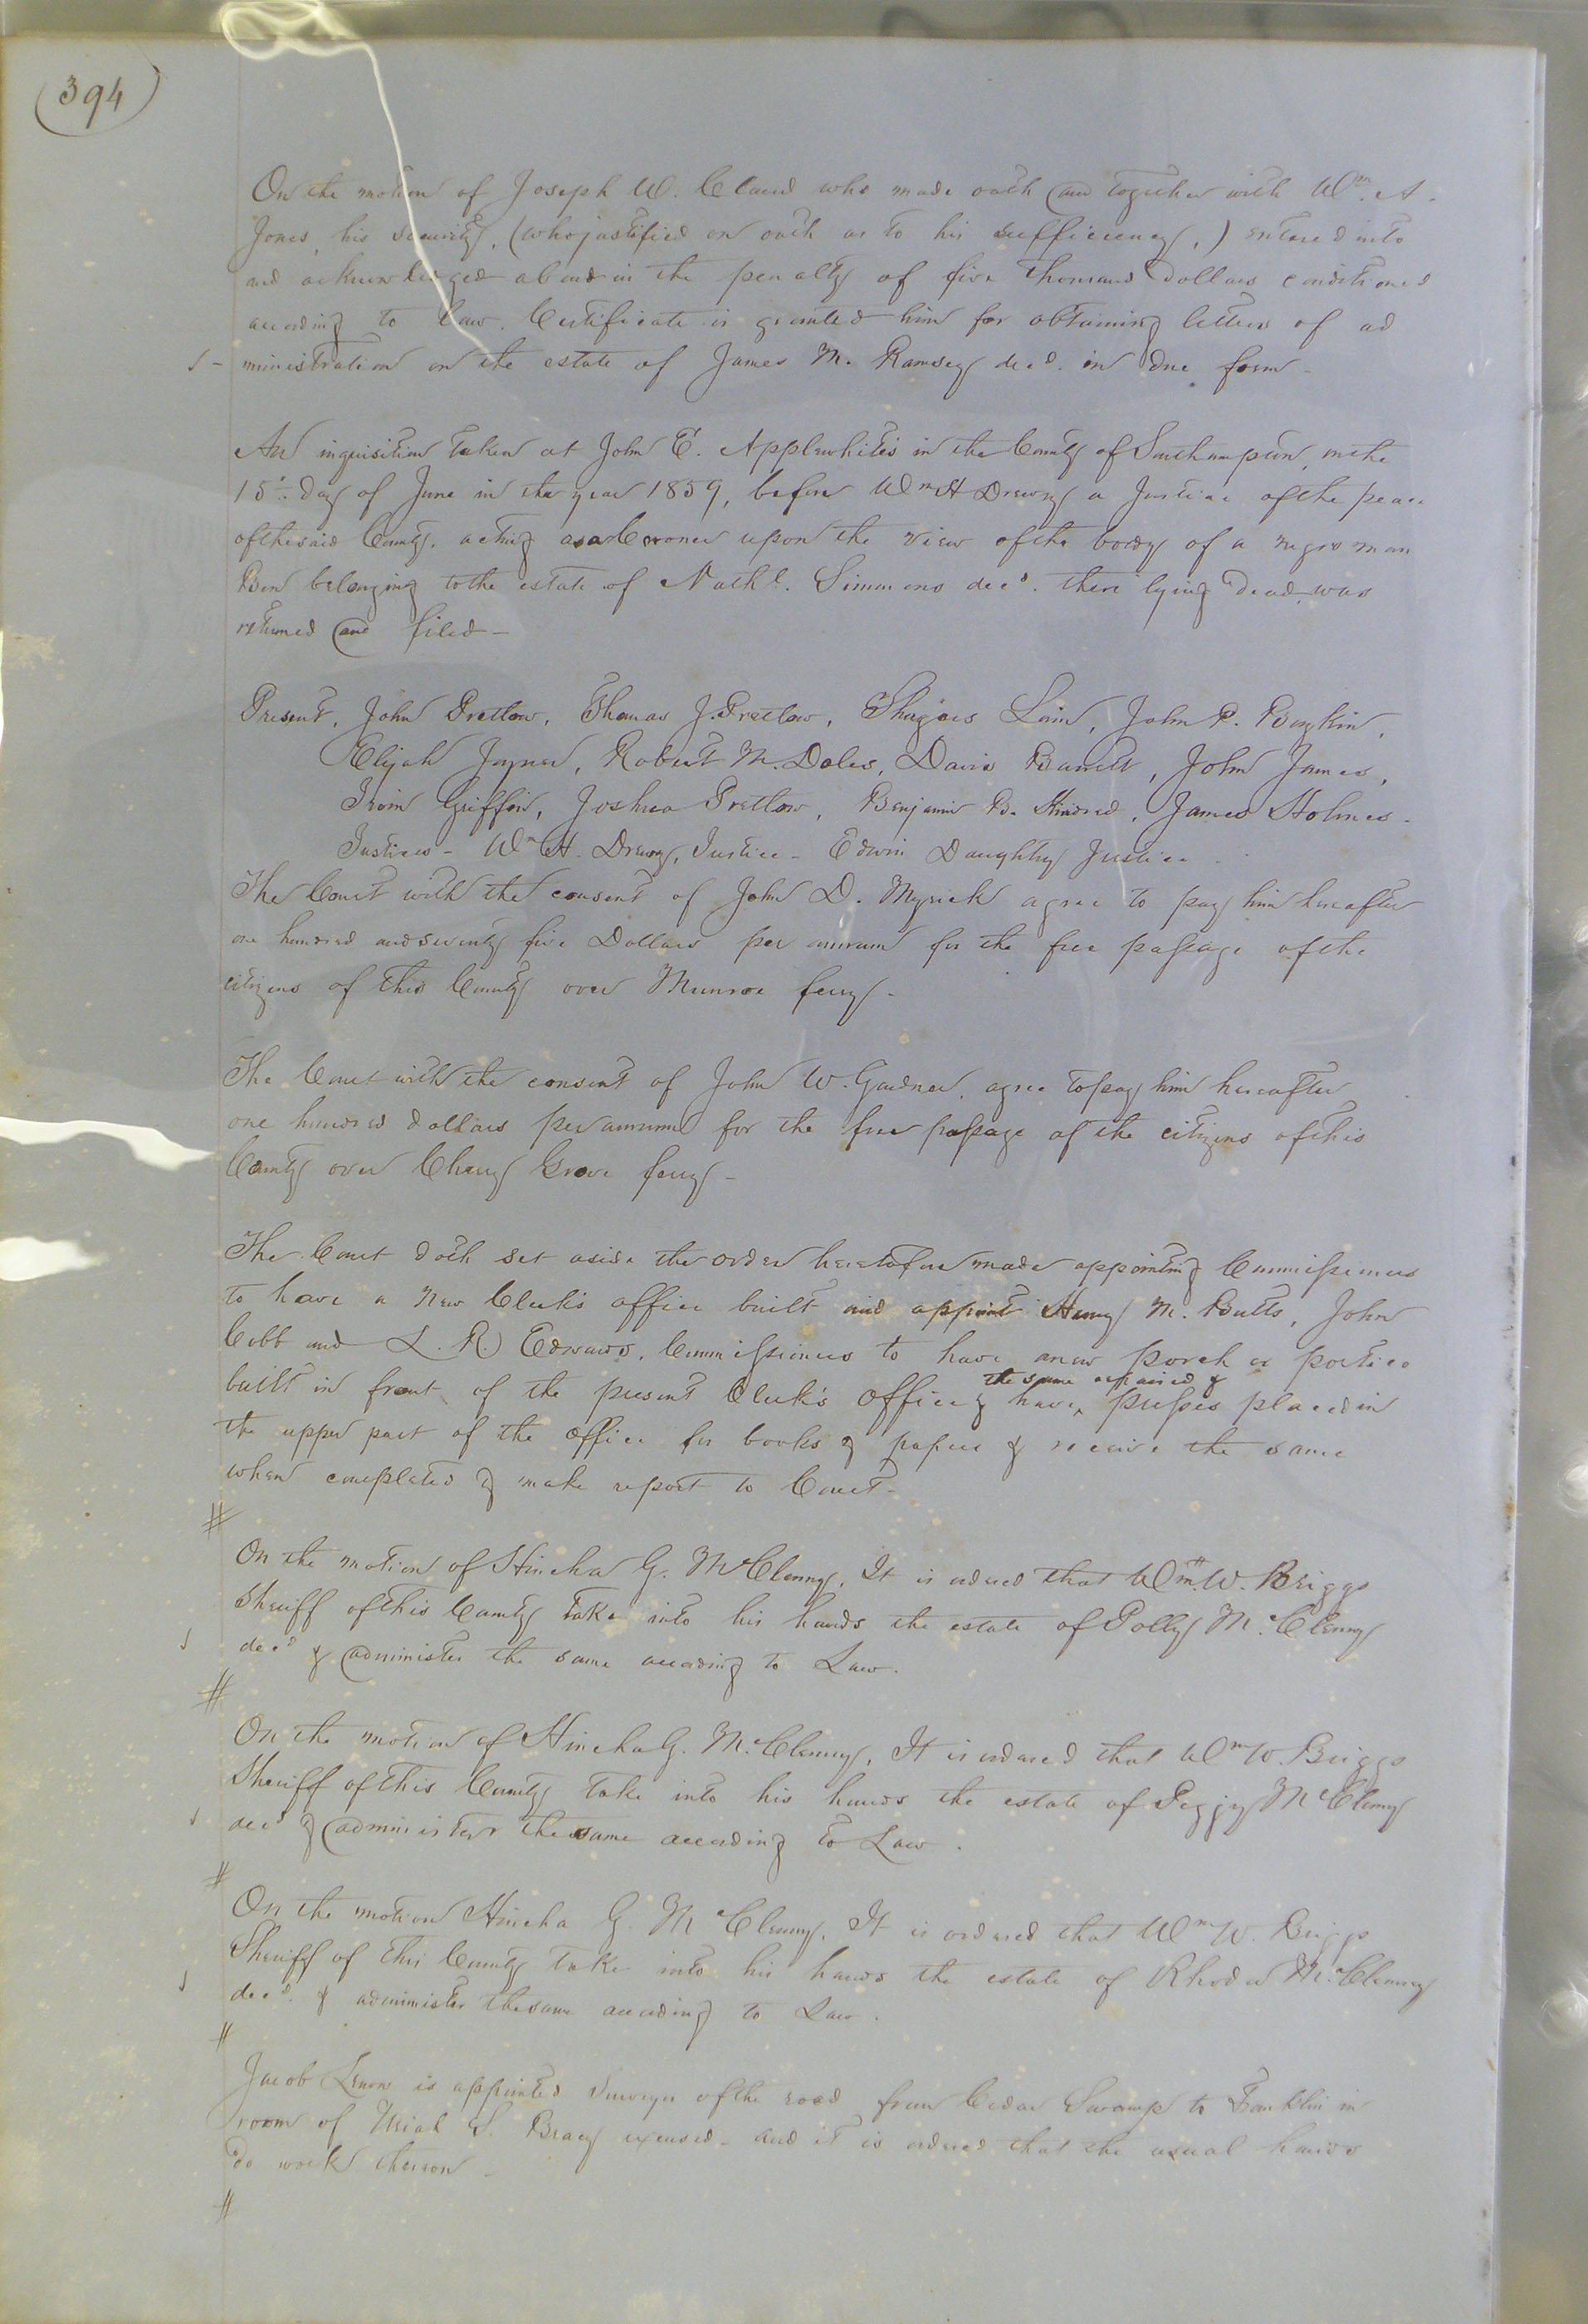 (394)
On the motion of Joseph W. Claud who made oath and together with Wm. A.
Jones, his security, (who justified on oath as to his sufficiency,) entered into
and acknowledged a bond in the penalty of five thousand dollars conditioned
according to law. Certificate is granted him for obtaining letters of ad
ministration on the estate of James M. Ramsey decd. in due form -
An inquisition taken at John E. Applewhite's in the County of Southampton, on the
15th day of June in the year 1859, before Wm H Drewry a Justice of the peace
of the said County, acting as a Coroner upon the view of the body of a negro man
Ben belonging to the estate of Nathl. Simmons decd. there lying dead, was
returned and filed -
Present, John Pretlow, Thomas J. Pretlow, Lain, John P.
Elijah Joyner, Robert M. Doles, David Barrett, John James,
Irvin Griffin, Joshua Pretlow, Benjamin B. Kindred, James Holmes -
Justices - Wm H. Drewry, Justice - Edwin Daughtry Justice -
The Court with the consent of John D. Myrick agree to pay him hereafter
one hundred and seventy five Dollars per annum for the free passage of the
citizens of this County over Munroe ferry -
The Court with the consent of John W. Gardner, agree to pay him hereafter
one hundred dollars per annum for the free passage of the citizens of this
County over Cherry Grove ferry -
The Court doth set aside the order heretofore made appointing Commissioners
to have a new Clerk's office built and appoint Henry M. Butts, John
Cobb and L. R. Edwards, Commissioners to have a new porch or portico
built in front of the present Clerk's Office & have the same repaired & presses placed in
the upper part of the office for books & papers & receive the same
when completed & make report to Court -
On the motion of Hincha G. McClenny, It is ordered that Wm. W. Briggs
Sheriff of this County take into his hands the estate of Polly McClenny
decd & administer the same according to Law.
On the motion of Hincha G. McClenny, It is ordered that Wm W. Briggs
Sheriff of this County take into his hands the estate of Peggy McClenny
decd & administer the same according to Law.
On the motion Hincha G. McClenny, It is ordered that Wm W. Briggs
Sheriff of this County take into his hands the estate of Rhoda McClenny
decd. & administer the same according to Law.
Jacob is appointed Surveyor of the road from Cedar Swamp to Franklin in
room of Uriah S. Bracy excused - and it is ordered that the usual hands
do work thereon -